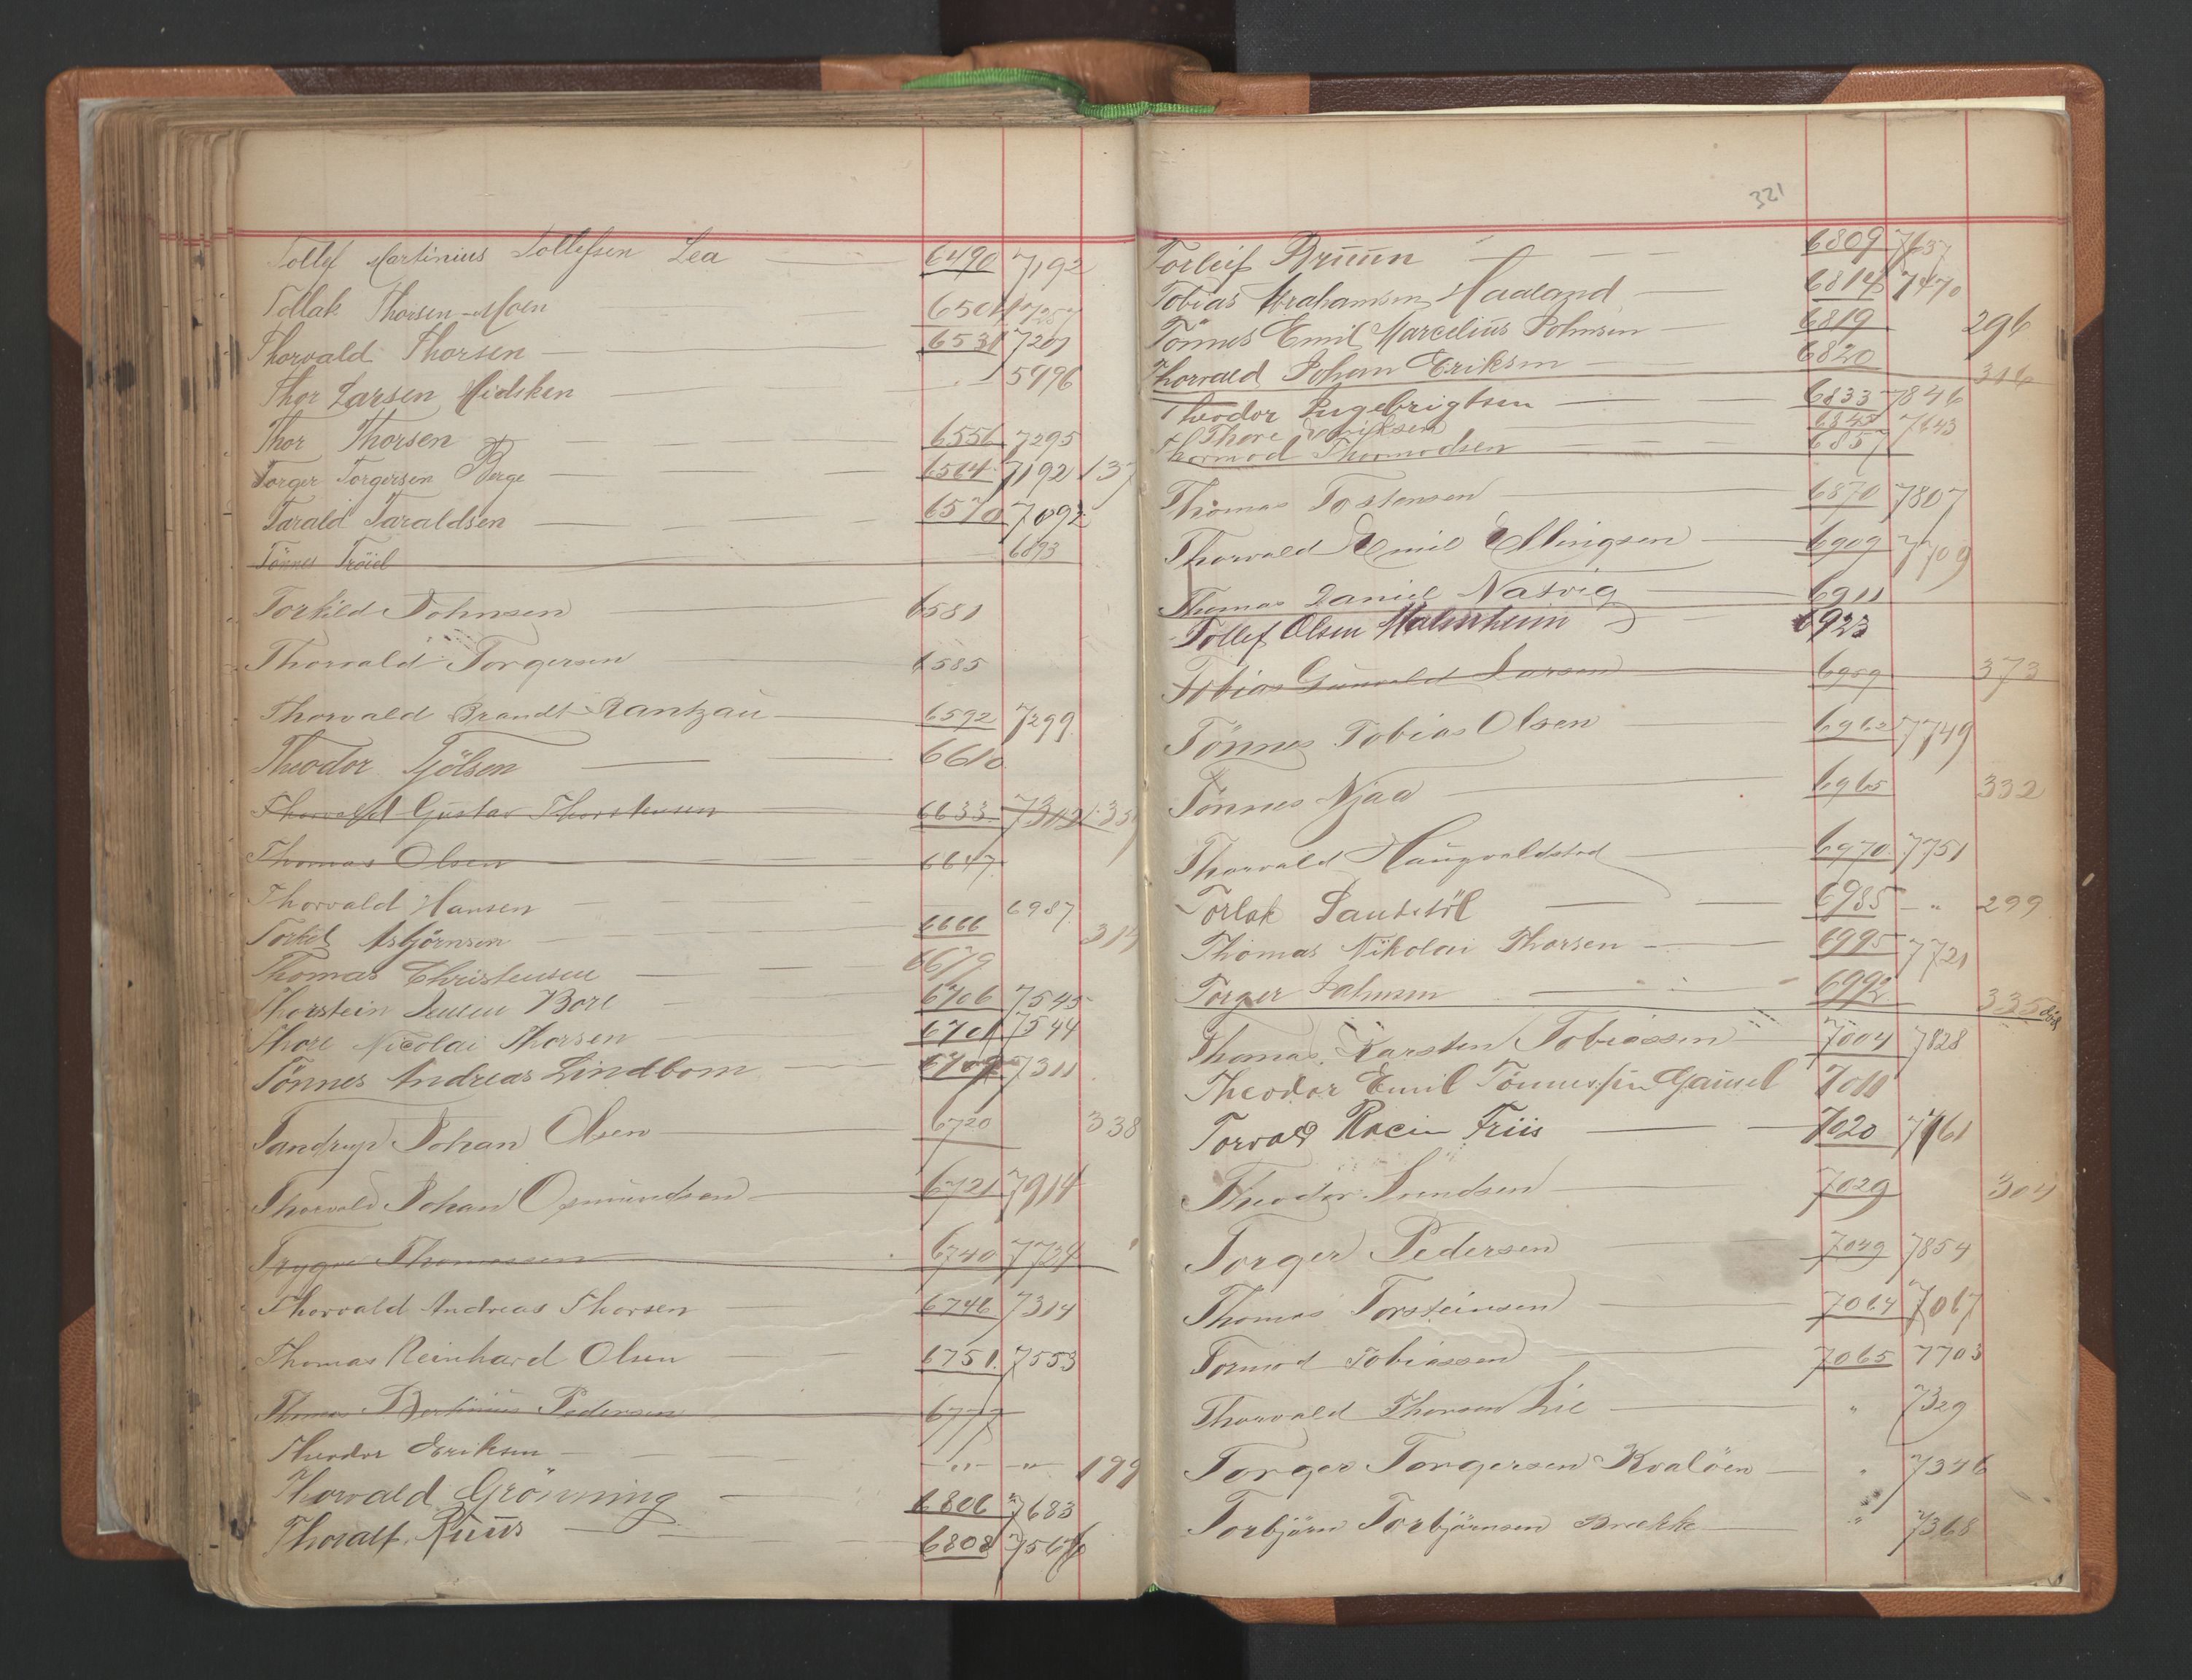 Tollef Martinius Tollefsen Lea 6490 7192
Tollak Thorsen Moen 6501 7257
Thorvald Thorsen 6531 7201
Thor Larsen Midsken 5996
Thor Thorsen 6556 7295
Torger Torgersen Berge 6564 7192 137
Tarald Taraldsen 6570 7092
Tönnes Tröiel 6893
Torkild Johnsen 6581
Thorvald Torgersen 6585
Thorvald Brandt Rantzau 6592 7299
Theodor Tjölsen 6610
Thorvald Gustav Thorstensen 6633
Thomas Olsen 6647
Thorvald Hansen 6987
Torkel Asbjörnsen 6666
Thomas Christensen 6679
Thorstein Jensen Bore 6706 7545
Thore Nicolai Thorsen 6701 7544
Tönnes Andreas Lindbom 6709 7311
Tandrup Johan Olsen 6720 338
Thorvald Johan Osmundsen 6721 7914
Trygve Thomassen 6740 7734
Thorvald Andreas Thorsen 6746 7314
Thomas Reinhard Olsen 6751. 7553
Thomas Bertinius Pedersen 6777
Theodor Eriksen " " 199
Thorvald Grönning 6806 7683
Thoralf Ruus 6808 7567
321
Torleif Bruun 6809 7637
Tobias Abrahamsen Haaland 6814 7470
Tönnes Emil Marcelius Johnsen 6819 296
Thorvald Johan Eriksen 6820 316
Theodor Ingebrigtsen 6833 7846
Thore 6845 7643
Thormod Thormodsen 6857
Thomas Tostensen 6870 7807
Thorvald Emil Ellingsen 6909 7709
Thomas Daniel Natvig 6911
Tollef Olsen Malmheim 6923
Tobias Gunvald Larsen 6959 373
Tönnes Tobias Olsen 6962 7749
Tönnes Njaa 6965 332
Thorvald Haugvaldstad 6970 7751
Torlak 6985 " 299
Thomas Nikolai Thorsen 6995 7721
Torger Johnsen 6992 335
Thomas Karsten Tobiassen 7004 7828
Theodor Emil Tönnessen Gausel 7011
Torvald Racin Friis 7020 7461
Theodor Svendsen 7029 304
Torger Pedersen 7049 7854
Thomas Torsteinsen 7064 7067
Tormod Tobiassen 7065 7703
Thorvald Thorsen Lie " 7329
Torger Torgersen Kvalöen " 7346
Torbjörn Torbjörnsen Brekke " 7368